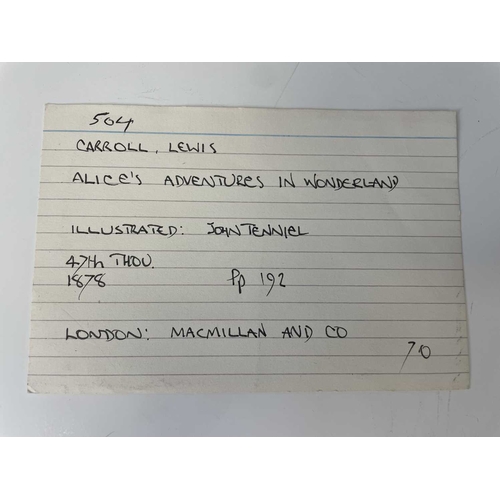 504
CARROLL, LEWIS
ALICE'S ADVENTURES IN WONDERLAND
ILLUSTRATED: JOHN TENNIEL
47th THOU.
1878 Pp 192
LONDON: MACMILLAN AND CO
70